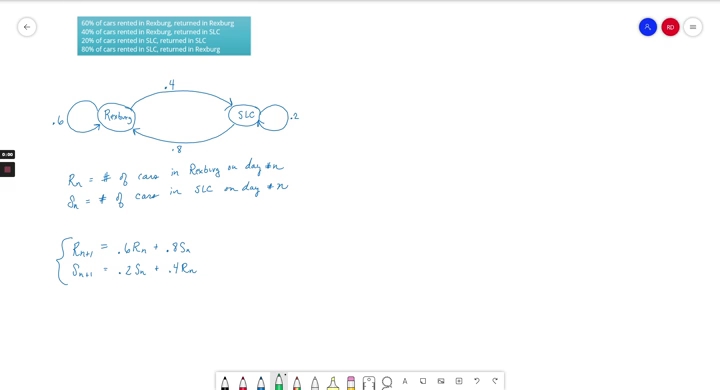 60% of cars rented in Rexburg, returned in Rexburg
40% of cars rented in Rexburg, returned in SLC
20% of cars rented in SLC, returned in SLC
80% of cars rented in SLC, returned in Rexburg
RD
.4
.6
Rexburg
SLC
.2
.8
0:00
Rn = # of cars in Rexburg on day #n
Sn = # of cars in SLC on day #n
Rn+1 = .6Rn + .8Sn
Sn+1 = .2Sn + .4Rn
A